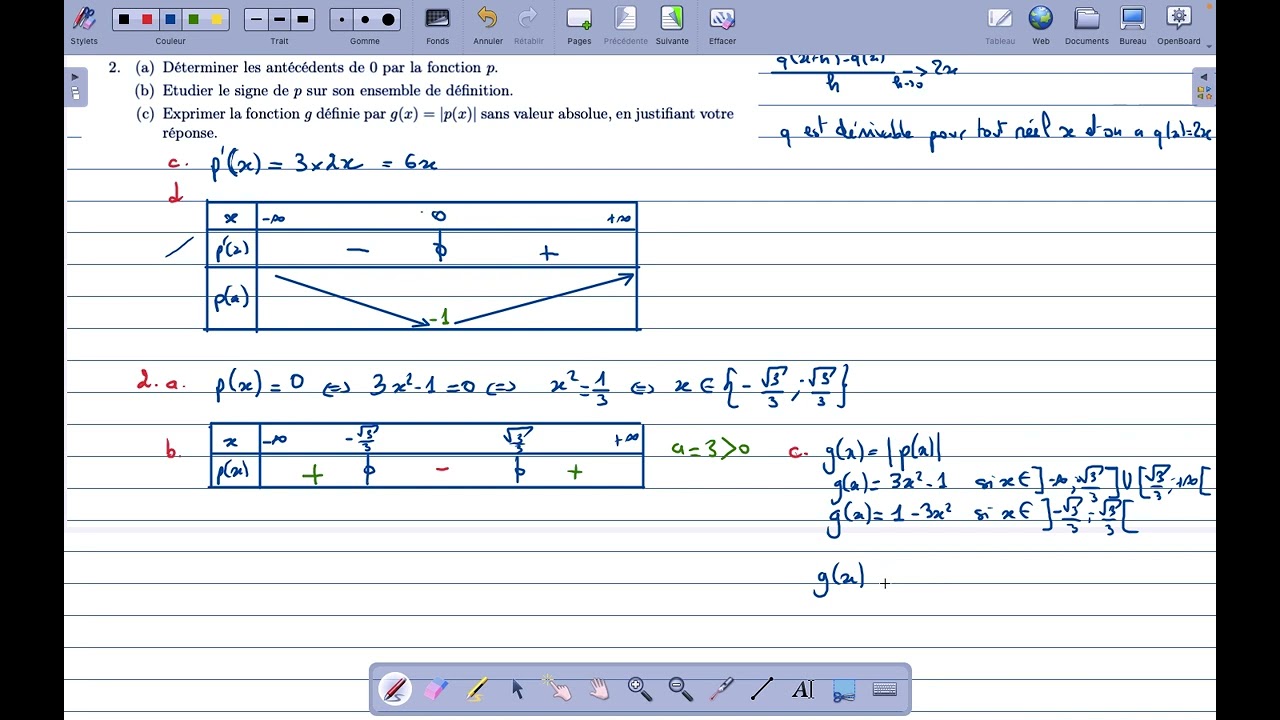 Stylets Couleur Trait Gomme Fonds Annuler Rétablir Pages Précédente Suivante Effacer Tableau Web Documents Bureau OpenBoard
2. (a) Déterminer les antécédents de 0 par la fonction p.
(b) Etudier le signe de p sur son ensemble de définition.
(c) Exprimer la fonction g définie par g(x) = |p(x)| sans valeur absolue, en justifiant votre
réponse.
q(x+h)-q(x) / h → 2x
h→0
q est dérivable pour tout réel x et on a q(x)=2x
c. p'(x) = 3×2x = 6x
d
x -∞ 0 +∞
p'(x) - 0 +
p(x) -1
2. a. p(x) = 0 ⇔ 3x²-1 = 0 ⇔ x² = 1/3 ⇔ x ∈ {-√3/3 ; √3/3}
b. x -∞ -√3/3 √3/3 +∞
p(x) + 0 - 0 +
a = 3 > 0
c. g(x) = |p(x)|
g(x) = 3x²-1 si x ∈ ]-∞ ; -√3/3] ∪ [√3/3 ; +∞[
g(x) = 1-3x² si x ∈ ]-√3/3 ; √3/3[
g(x)
AI